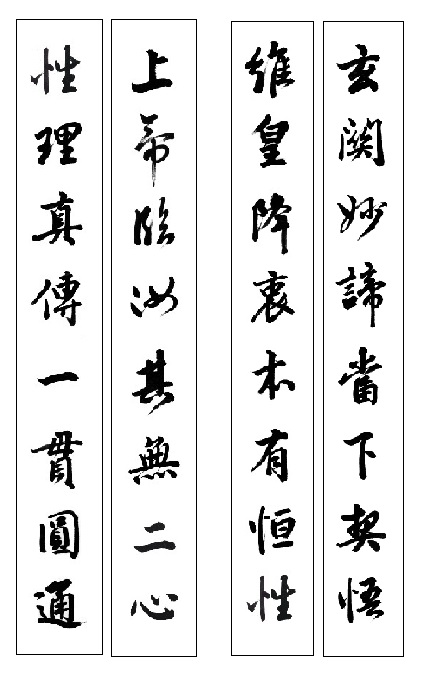 玄関妙諦當下契悟
維皇降衷本有恒性
上帝臨汝其無二心
性理真傳一貫圓通